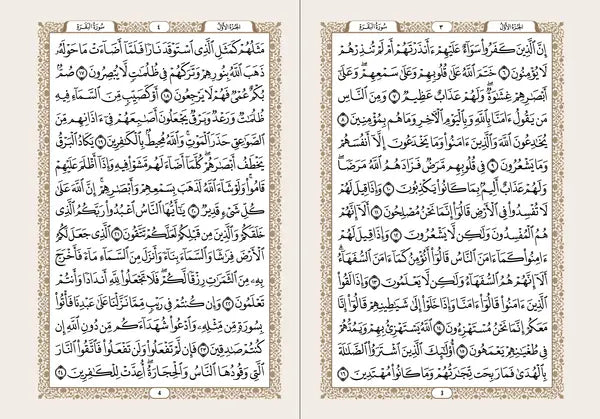 الجزء الأول ٣ سورة البقرة
إِنَّ ٱلَّذِينَ كَفَرُوا۟ سَوَآءٌ عَلَيْهِمْ ءَأَنذَرْتَهُمْ أَمْ لَمْ تُنذِرْهُمْ
لَا يُؤْمِنُونَ ٦ خَتَمَ ٱللَّهُ عَلَىٰ قُلُوبِهِمْ وَعَلَىٰ سَمْعِهِمْ وَعَلَىٰٓ
أَبْصَٰرِهِمْ غِشَٰوَةٌ وَلَهُمْ عَذَابٌ عَظِيمٌ ٧ وَمِنَ ٱلنَّاسِ
مَن يَقُولُ ءَامَنَّا بِٱللَّهِ وَبِٱلْيَوْمِ ٱلْءَاخِرِ وَمَا هُم بِمُؤْمِنِينَ ٨
يُخَٰدِعُونَ ٱللَّهَ وَٱلَّذِينَ ءَامَنُوا۟ وَمَا يَخْدَعُونَ إِلَّآ أَنفُسَهُمْ
وَمَا يَشْعُرُونَ ٩ فِى قُلُوبِهِم مَّرَضٌ فَزَادَهُمُ ٱللَّهُ مَرَضًا
وَلَهُمْ عَذَابٌ أَلِيمٌۢ بِمَا كَانُوا۟ يَكْذِبُونَ ١٠ وَإِذَا قِيلَ لَهُمْ
لَا تُفْسِدُوا۟ فِى ٱلْأَرْضِ قَالُوٓا۟ إِنَّمَا نَحْنُ مُصْلِحُونَ ١١ أَلَآ إِنَّهُمْ
هُمُ ٱلْمُفْسِدُونَ وَلَٰكِن لَّا يَشْعُرُونَ ١٢ وَإِذَا قِيلَ لَهُمْ
ءَامِنُوا۟ كَمَآ ءَامَنَ ٱلنَّاسُ قَالُوٓا۟ أَنُؤْمِنُ كَمَآ ءَامَنَ ٱلسُّفَهَآءُ
أَلَآ إِنَّهُمْ هُمُ ٱلسُّفَهَآءُ وَلَٰكِن لَّا يَعْلَمُونَ ١٣ وَإِذَا لَقُوا۟
ٱلَّذِينَ ءَامَنُوا۟ قَالُوٓا۟ ءَامَنَّا وَإِذَا خَلَوْا۟ إِلَىٰ شَيَٰطِينِهِمْ قَالُوٓا۟ إِنَّا
مَعَكُمْ إِنَّمَا نَحْنُ مُسْتَهْزِءُونَ ١٤ ٱللَّهُ يَسْتَهْزِئُ بِهِمْ وَيَمُدُّهُمْ
فِى طُغْيَٰنِهِمْ يَعْمَهُونَ ١٥ أُو۟لَٰٓئِكَ ٱلَّذِينَ ٱشْتَرَوُا۟ ٱلضَّلَٰلَةَ
بِٱلْهُدَىٰ فَمَا رَبِحَت تِّجَٰرَتُهُمْ وَمَا كَانُوا۟ مُهْتَدِينَ ١٦
3
الجزء الأول ٤ سورة البقرة
مَثَلُهُمْ كَمَثَلِ ٱلَّذِى ٱسْتَوْقَدَ نَارًا فَلَمَّآ أَضَآءَتْ مَا حَوْلَهُۥ
ذَهَبَ ٱللَّهُ بِنُورِهِمْ وَتَرَكَهُمْ فِى ظُلُمَٰتٍ لَّا يُبْصِرُونَ ١٧ صُمٌّۢ
بُكْمٌ عُمْىٌ فَهُمْ لَا يَرْجِعُونَ ١٨ أَوْ كَصَيِّبٍ مِّنَ ٱلسَّمَآءِ فِيهِ
ظُلُمَٰتٌ وَرَعْدٌ وَبَرْقٌ يَجْعَلُونَ أَصَٰبِعَهُمْ فِىٓ ءَاذَانِهِم مِّنَ
ٱلصَّوَٰعِقِ حَذَرَ ٱلْمَوْتِ وَٱللَّهُ مُحِيطٌۢ بِٱلْكَٰفِرِينَ ١٩ يَكَادُ ٱلْبَرْقُ
يَخْطَفُ أَبْصَٰرَهُمْ كُلَّمَآ أَضَآءَ لَهُم مَّشَوْا۟ فِيهِ وَإِذَآ أَظْلَمَ عَلَيْهِمْ
قَامُوا۟ وَلَوْ شَآءَ ٱللَّهُ لَذَهَبَ بِسَمْعِهِمْ وَأَبْصَٰرِهِمْ إِنَّ ٱللَّهَ عَلَىٰ
كُلِّ شَىْءٍ قَدِيرٌ ٢٠ يَٰٓأَيُّهَا ٱلنَّاسُ ٱعْبُدُوا۟ رَبَّكُمُ ٱلَّذِى
خَلَقَكُمْ وَٱلَّذِينَ مِن قَبْلِكُمْ لَعَلَّكُمْ تَتَّقُونَ ٢١ ٱلَّذِى جَعَلَ لَكُمُ
ٱلْأَرْضَ فِرَٰشًا وَٱلسَّمَآءَ بِنَآءً وَأَنزَلَ مِنَ ٱلسَّمَآءِ مَآءً فَأَخْرَجَ
بِهِۦ مِنَ ٱلثَّمَرَٰتِ رِزْقًا لَّكُمْ فَلَا تَجْعَلُوا۟ لِلَّهِ أَندَادًا وَأَنتُمْ
تَعْلَمُونَ ٢٢ وَإِن كُنتُمْ فِى رَيْبٍ مِّمَّا نَزَّلْنَا عَلَىٰ عَبْدِنَا فَأْتُوا۟
بِسُورَةٍ مِّن مِّثْلِهِۦ وَٱدْعُوا۟ شُهَدَآءَكُم مِّن دُونِ ٱللَّهِ إِن
كُنتُمْ صَٰدِقِينَ ٢٣ فَإِن لَّمْ تَفْعَلُوا۟ وَلَن تَفْعَلُوا۟ فَٱتَّقُوا۟ ٱلنَّارَ
ٱلَّتِى وَقُودُهَا ٱلنَّاسُ وَٱلْحِجَارَةُ أُعِدَّتْ لِلْكَٰفِرِينَ ٢٤
4